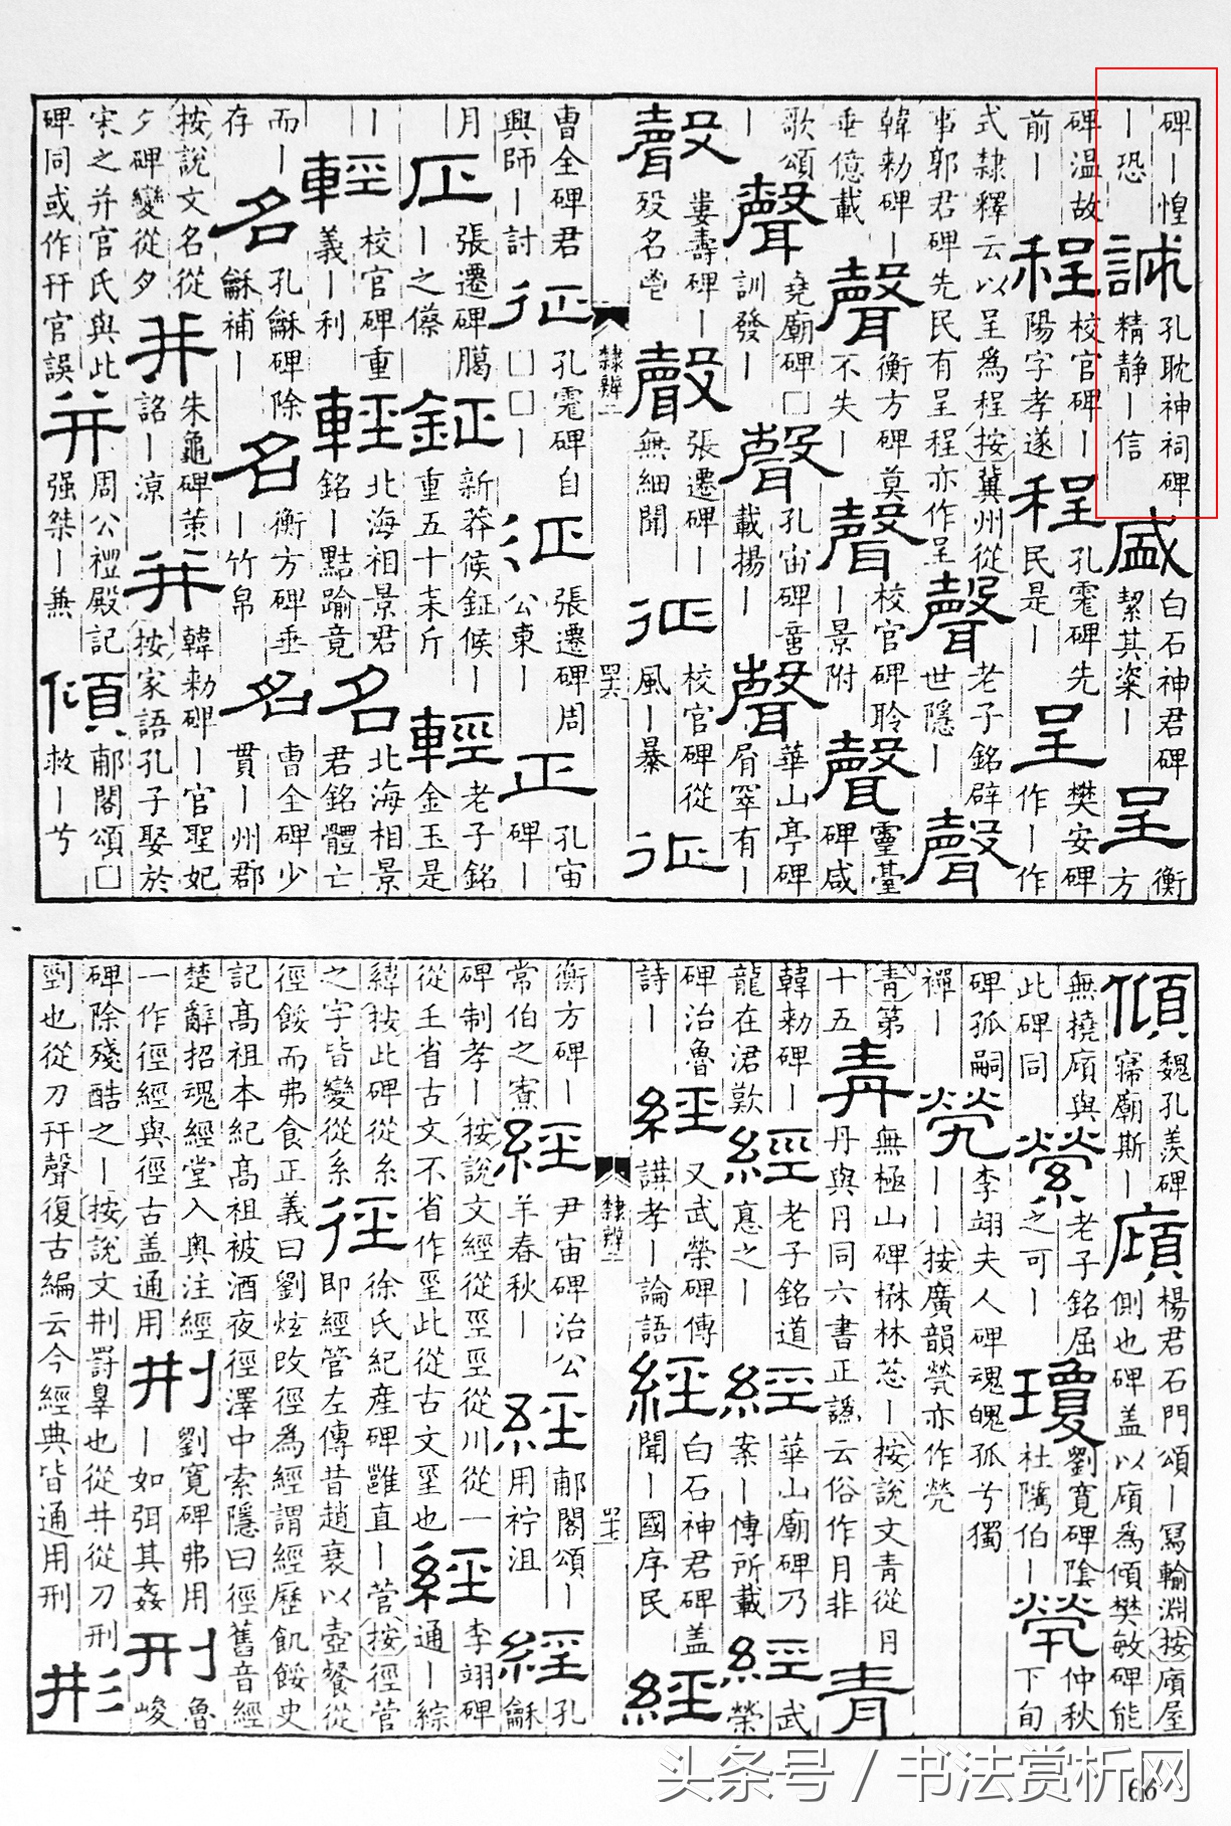 碑｜惶
｜恐
誠
孔耽神祠碑
精静｜信
盛
白石神君碑
絜其粢｜
呈
衡方
碑温故
前｜
程
校官碑｜
陽字孝遂
程
孔霮碑先
民是｜
呈
樊安碑
作｜作
式隸釋云以呈爲程按冀州從
事郭君碑先民有呈程亦作呈
聲
老子銘辟
世隱｜
聲
韓勑碑｜
垂億載
聲
衡方碑莫
不失｜
聲
校官碑聆
｜景附
聲
靈臺
碑咸
歌頌
｜
聲
堯廟碑□
訓發｜
聲
孔宙碑音
載揚｜
聲
華山亭碑
有｜
聲
婁壽碑｜
歿名
聲
張遷碑｜
無細聞
征
校官碑從
風｜暴
征
隸辨二
曹全碑君
興師｜討
征
孔霮碑自
□□｜
征
張遷碑周
公東｜
正
孔宙
碑｜
月
｜
正
張遷碑臈
｜之
鉦
新莽候鉦候｜
重五十斤
輕
老子銘
金玉是
輕
校官碑重
義｜利
輕
北海相景君
銘｜點踰竟
名
北海相景
君銘體亡
而｜
存
名
孔龢碑除
龢補｜
名
衡方碑垂
｜竹帛
名
曹全碑少
貫｜州郡
按說文名從
夕碑變從夕
并
朱龜碑策
詺｜涼
并
韓勑碑｜官聖妃
按家語孔子娶於
宋之并官氏與此
碑同或作幵官誤
并
周公禮殿記
强桀｜兼
傾
郙閣頌□
救｜兮
傾
魏孔羨碑
寢廟斯｜
廎
楊君石門頌｜寫輸淵按廎屋
側也碑盖以廎爲傾樊敏碑能
無撓廎與
此碑同
縈
老子銘屈
之可｜
瓊
劉寬碑陰
杜隲伯｜
煢
仲秋
下旬
碑孤嗣
襌｜
煢
李翊夫人碑魂魄孤兮獨
｜｜按廣韻煢亦作茕
青第
十五
青
無極山碑楙林葱｜按說文青從
丹與丹同六書正譌云俗作月非
青
韓勑碑｜
龍在涒歎
經
老子銘道
悳之｜
經
華山廟碑乃
案｜傳所載
經
武
榮
碑治魯
詩｜
經
又武榮碑傳
講孝｜論語
經
白石神君碑盖
聞｜國序民
經
隸辨二
衡方碑｜
常伯之寮
經
尹宙碑治公
羊春秋｜
經
郙閣頌｜
用柠沮
經
孔
龢
碑制孝｜按說文經從巠巠從川從一
從𡈼省古文不省作𡿭此從古文巠也
經
李翊碑
通｜綜
緯按此碑從糸
之字皆變從系
徑
徐氏紀產碑雝直｜菅按徑菅
即經管左傳昔趙衰以壺餐從
徑餒而弗食正義曰劉炫改徑爲經謂經歷飢餒史
記高祖本紀高祖被酒夜徑澤中索隱曰徑舊音經
楚辭招魂經堂入奥注經
一作徑經與徑古盖通用
荆
劉寬碑弗用
｜如弭其姦
刑
魯
峻
碑除殘酷之｜按說文荆罸辠也從井從刀刑
剄也從刀幵聲復古編云今經典皆通用刑
形
头条号 / 书法赏析网
66